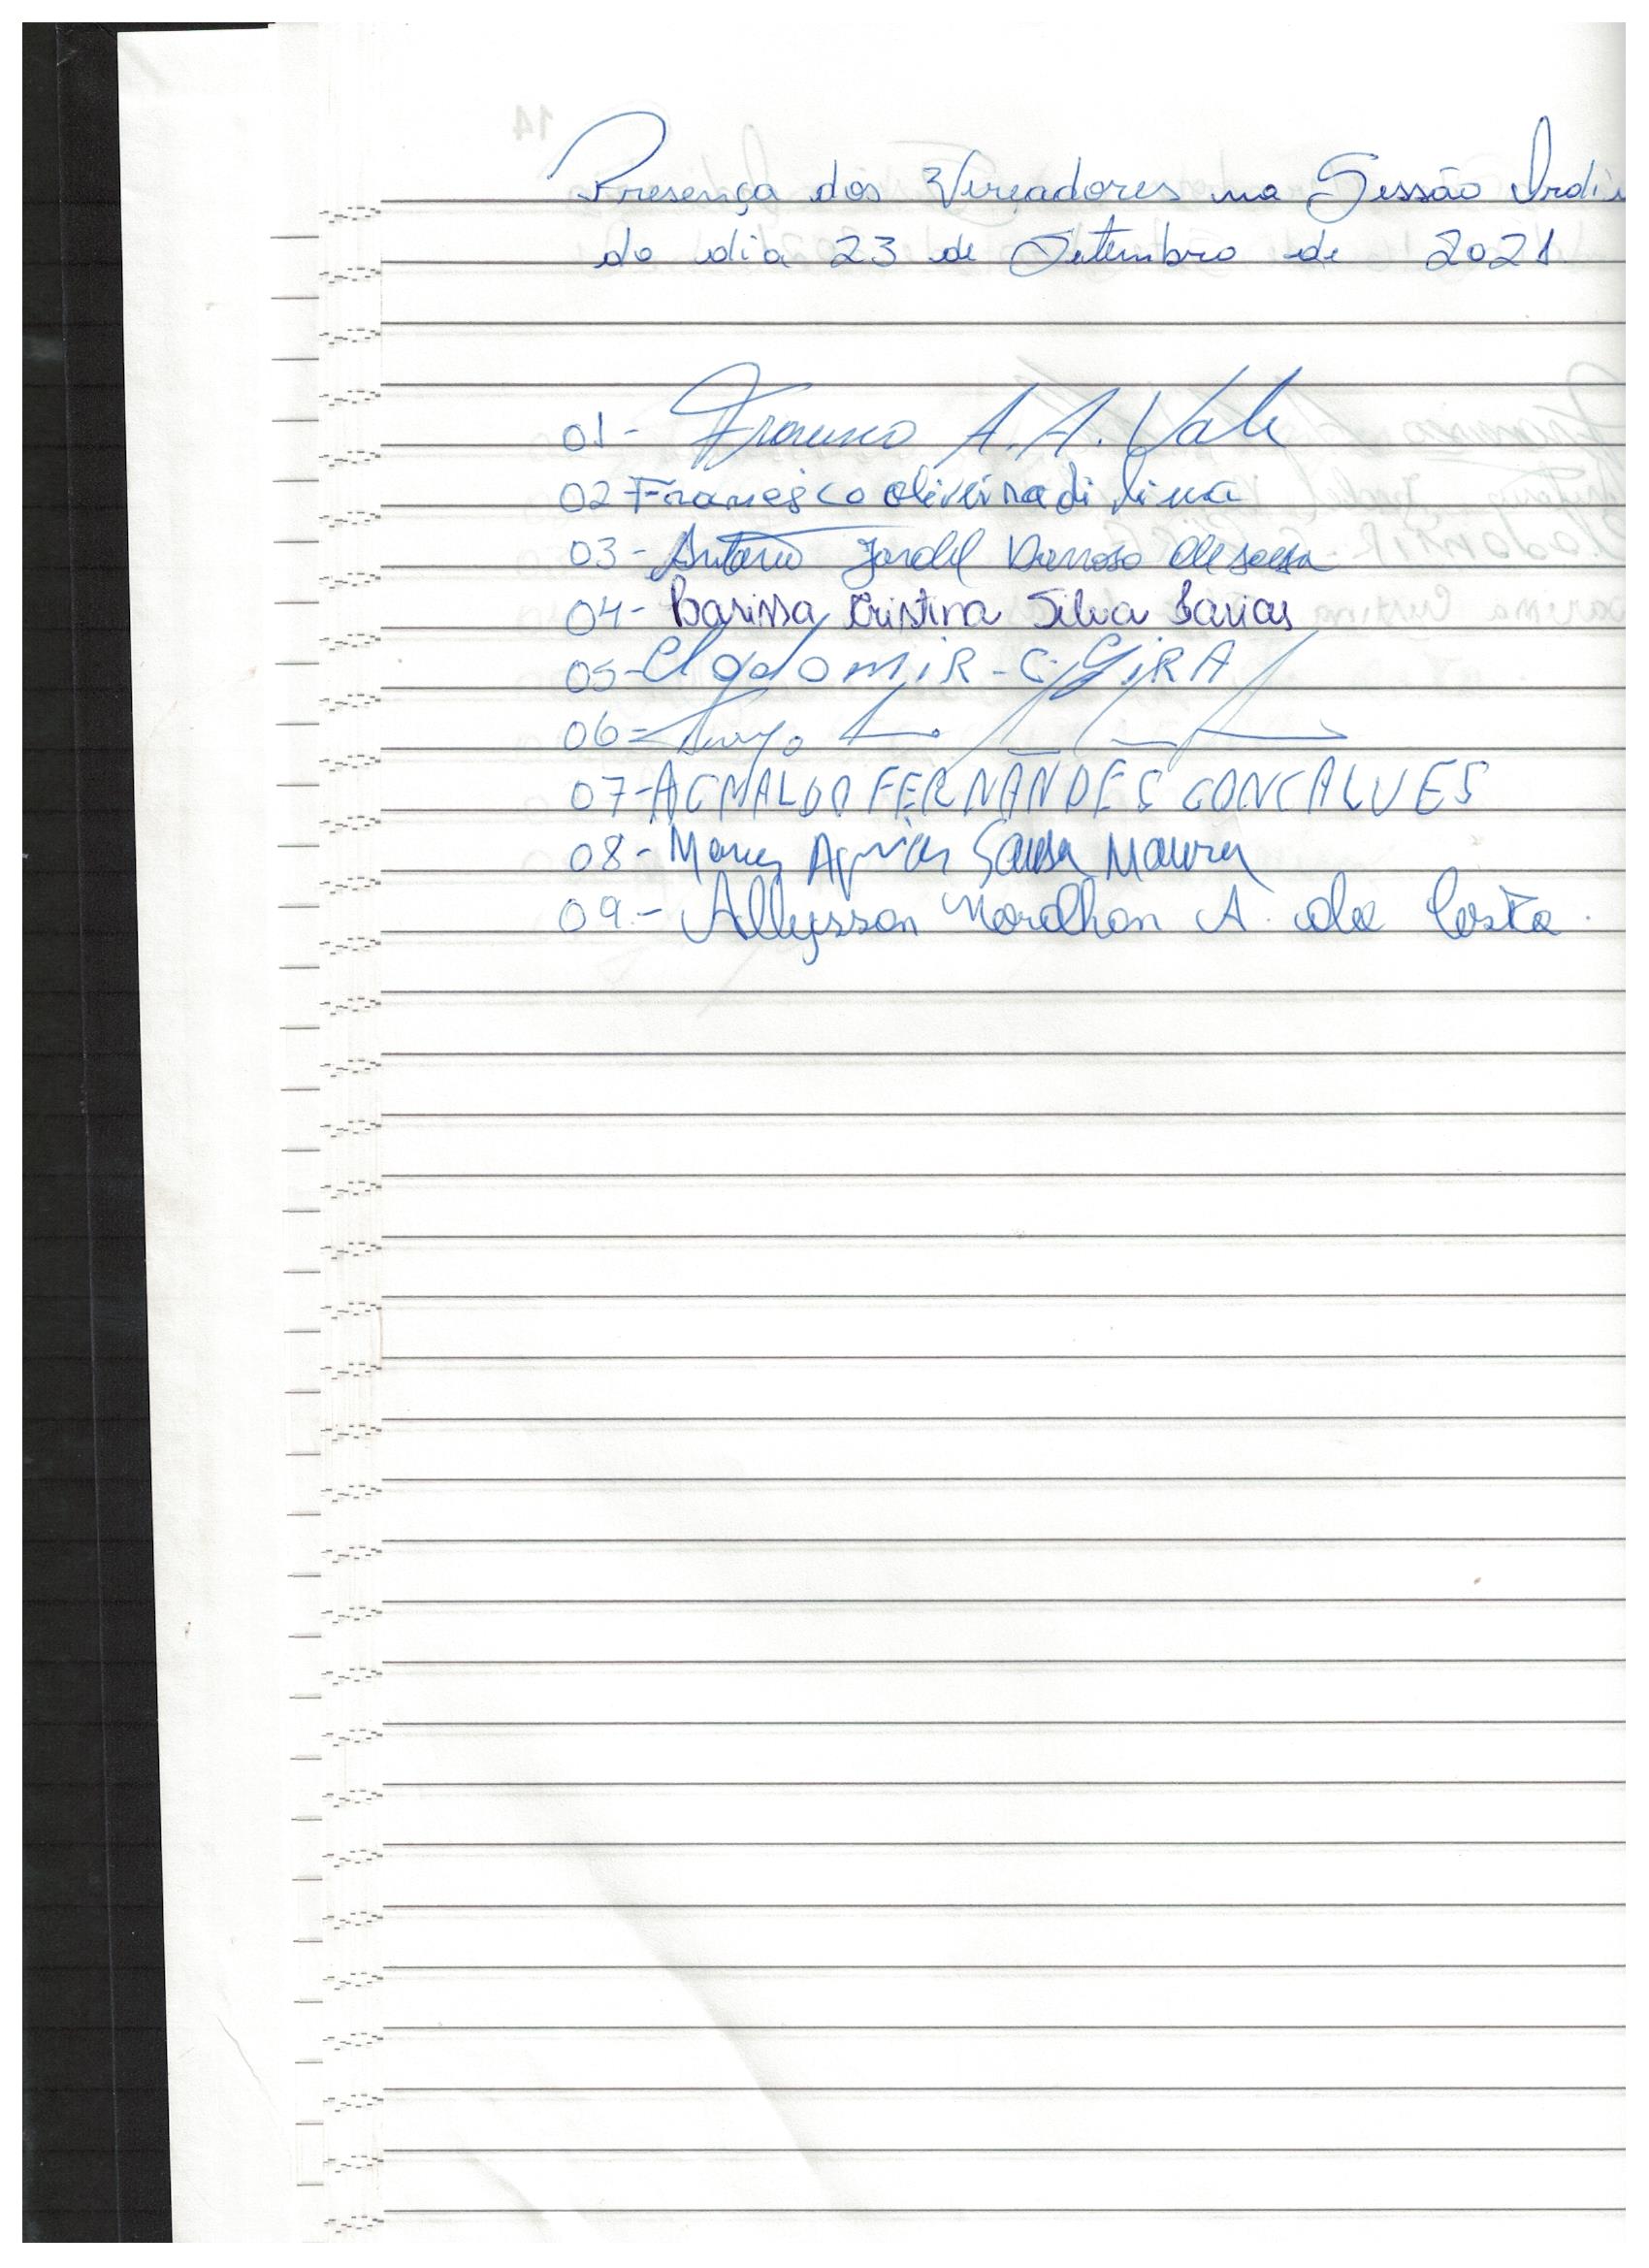 Presença dos Vereadores na Sessão Ordi
do dia 23 de Setembro de 2021.
01- Francisco A. A. Vale
02 Francisco oliveira di lima
03- Antonio Jardel Barroso de sousa
04- Larissa Cristina Silva Farias
05- Clodomir - C. SiRA
06-
07- AGNALDO FERNANDES GONCALVES
08- Sousa Moura
09.- Allysson A. da Costa.